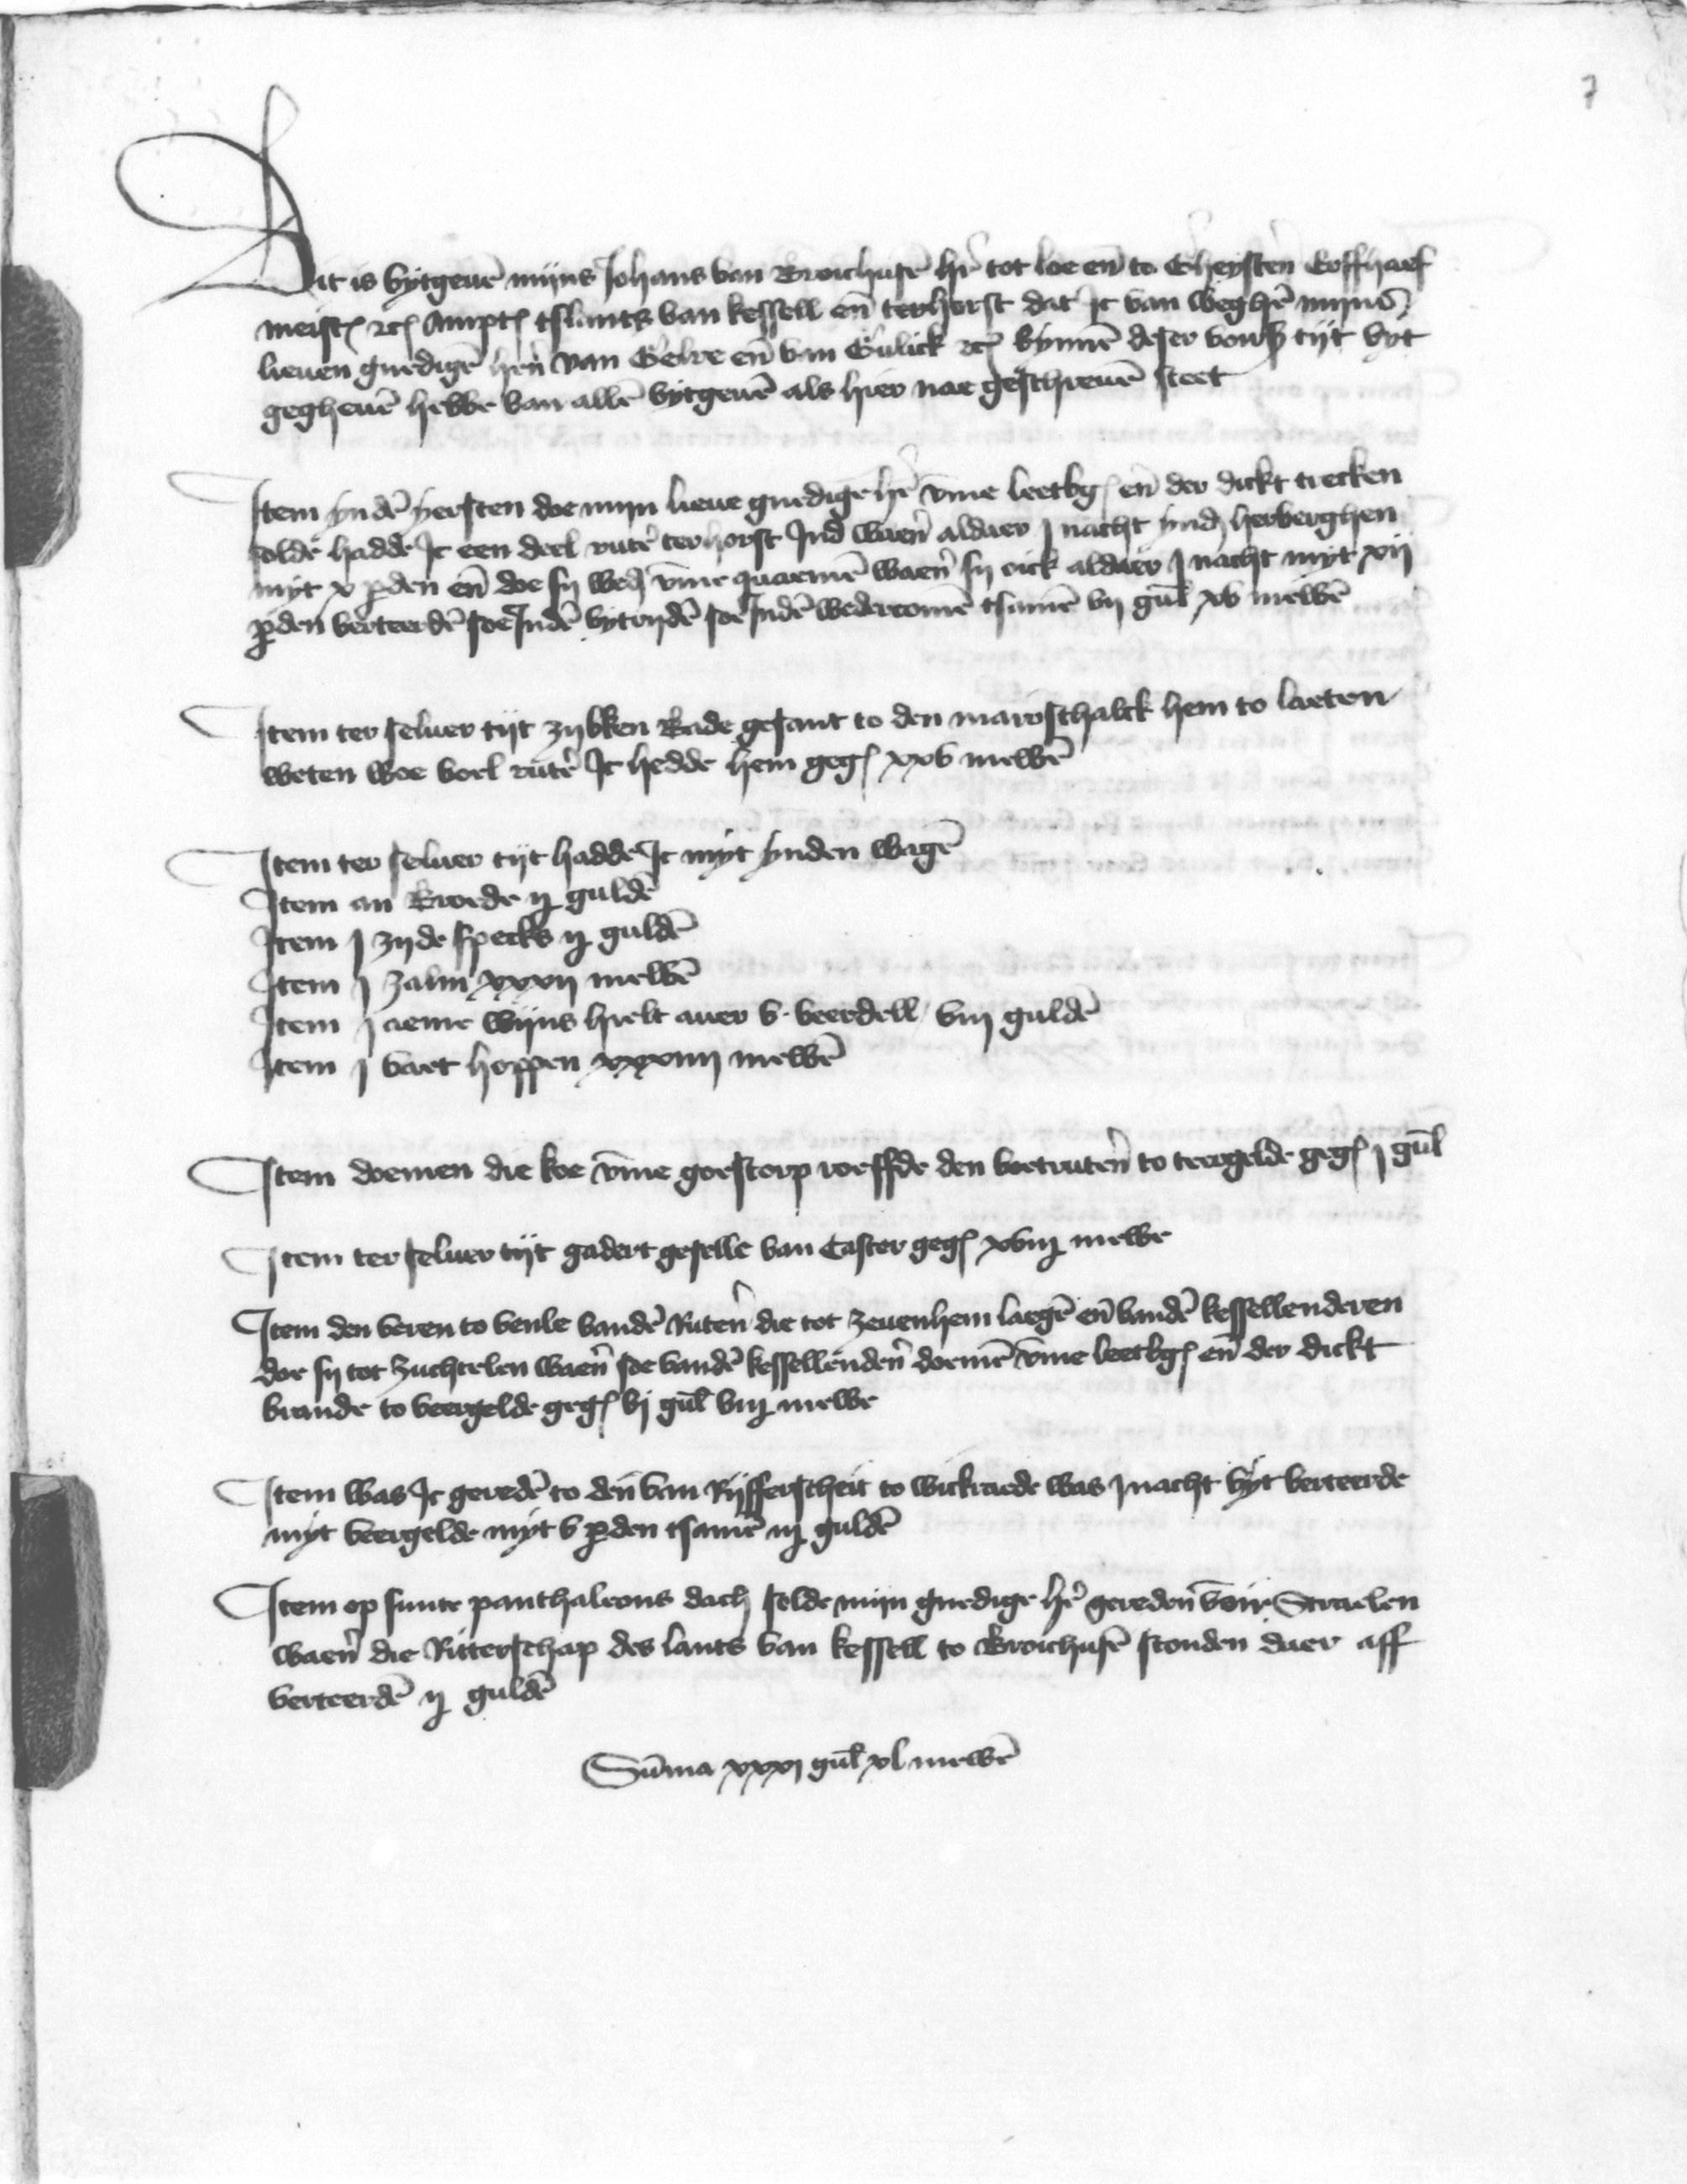 7
Dit is vytgeuē mijns Johans van Broichusē hr̄ tot loe en̄ to Gheysterē
meist͛ etc͛ Ampt͛ tslants van kessell en̄ terhorst dat Jc van weghē mijns
lieuen gnedigē hrn̄ van Gelre en̄ van Gulick etc͛ bynnē deser tijt vyt
gegheuē hebbe van allē vytgeuē als hier nae geschreuē steet
Item yndē yersten doe mijn lieue gnedige hr̄ vm̄e leetbg͛ en̄ der dickt trecken
solde hadde Jc een deel rutē terhorst Ind waeñ aldaer j nacht ynd herberghen
myt x ꝑden en̄ doe sy wed͛ vm̄e quaemē waeñ sy oick aldaer j nacht myt xij
ꝑden verteerdē soe Indē vytrydē soe Indē wedercomē tsamē vij gul̄ xv mewē
Item ter seluer tijt zybken Rade gesant to den marschalck hem to laeten
weten woe voel rutē Jc hedde hem geg͛ xxv mewē
Item ter seluer tijt hadde Jc myt ynden wagē
Item an Broede ij guldē
Item j zyde specks ij guldē
Item j zalm xxxij mewē
Item j aeme wijns hielt auer v veerdell viij guldē
Item j vaet hoppen xxxiiij mewē
Item doemen die koe vm̄e goestorp roeffde den voetrutēn to teergelde geg͛ j gul̄
Item ter seluer tijt gadert geselle van Caster geg͛ xviij mewe
Item den veren to venle vandē Rutēn die tot zeuenhem laegē en̄ vandē kessellenderen
doe sy tot zuchtelen waeñ soe vandē kessellendeñ doemē vm̄e leetbg͛ en̄ der dickt
brande to veergelde geg͛ vj gul̄ viij mewe
Item was Jc geredē to den van Rijfferscheit to wickraede was j nacht vyt verteerde
myt veergelde myt v ꝑden tsamē iij guldē
Item op sunte panthaleons dach solde mijn gnedige hr̄ geredeñ voir Straelen
waeñ die Ritterschap des lants van kessell to Broichusē stonden daer aff
verteerdē ij guldē
Sum̄a xxxj gul̄ xl mewē